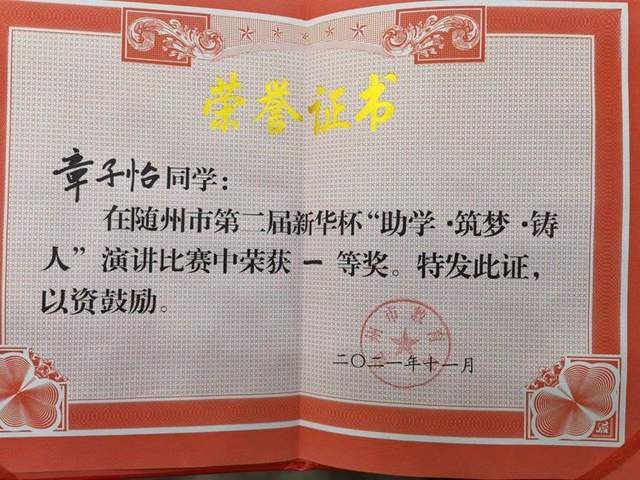 荣誉证书
章子怡同学：
在随州市第二届新华杯“助学·筑梦·铸
人”演讲比赛中荣获一等奖。特发此证，
以资鼓励。
州市教育
二〇二一年十一月